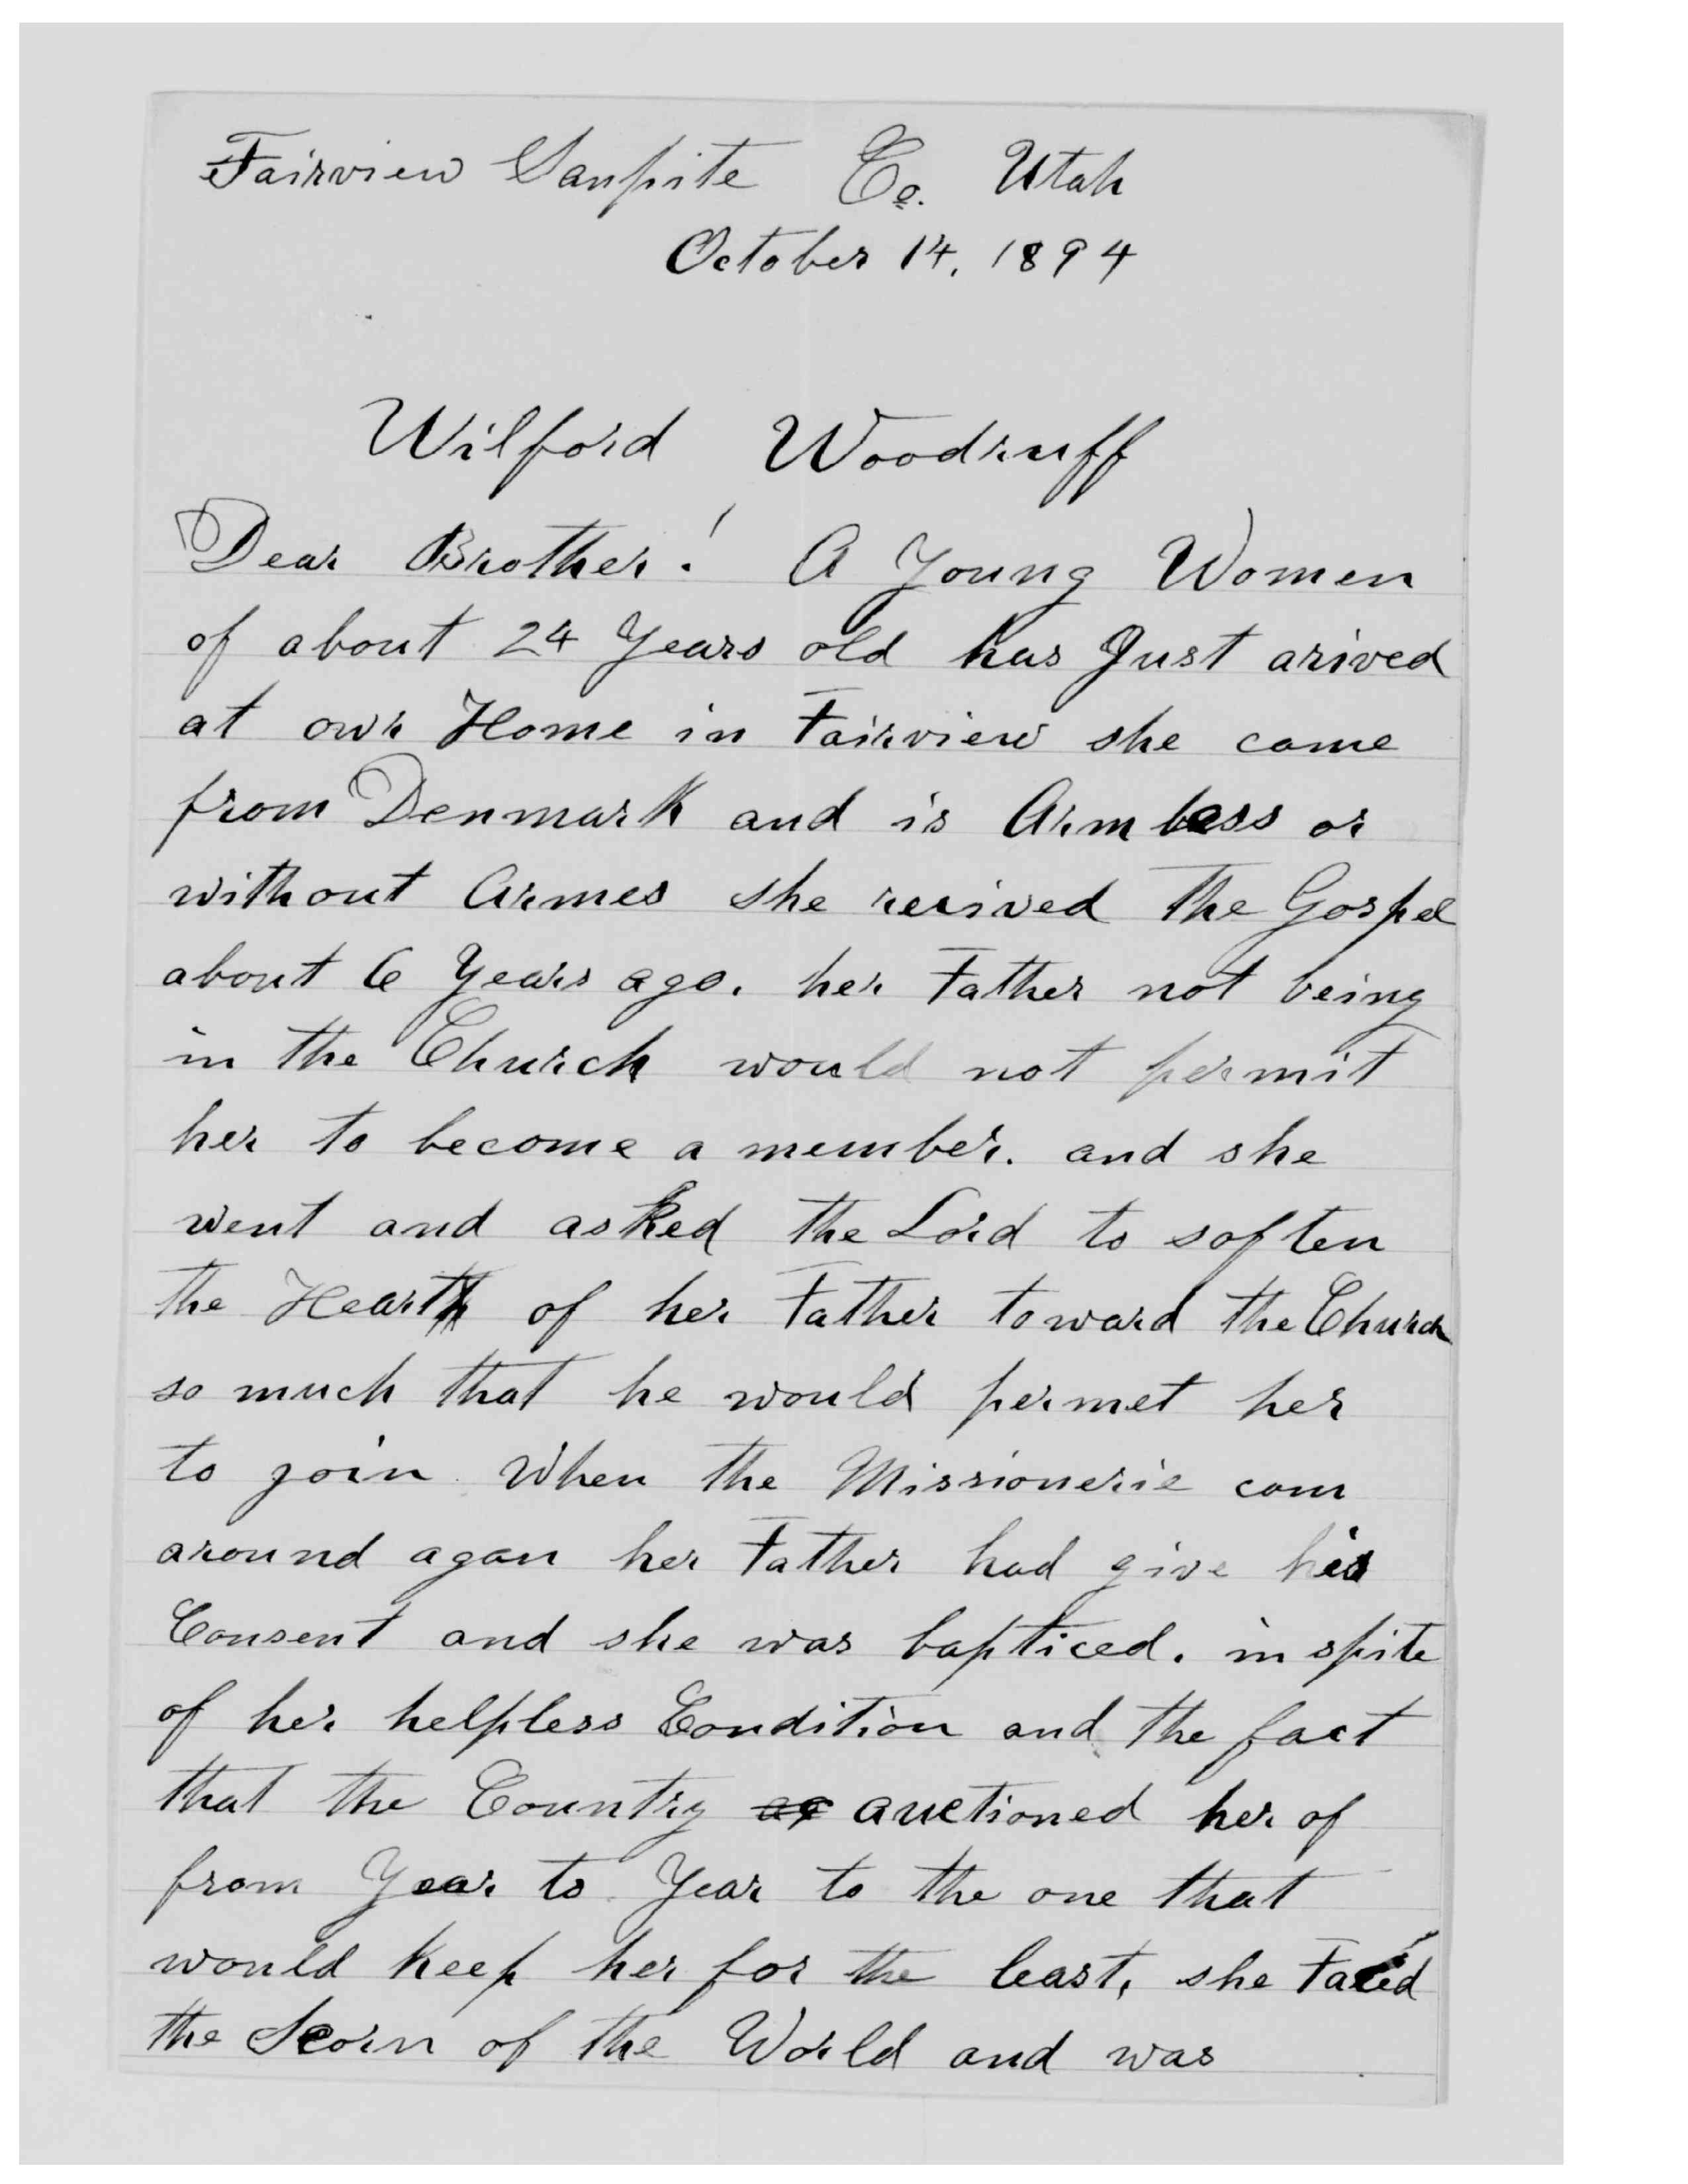 Fairview Sanpite Co. Utah
October 14, 1894
Wilford Woodruff
Dear Brother! A Young Women
of about 24 Years old has Just arived
at owr Home in Fairview she came
from Denmark and is Armless or
without Armes she recived the Gospel
about 6 Years ago. her Father not being
in the Church would not permit
her to become a member. and she
went and asked the Lord to soften
the Heart of her Father toward the Church
so much that he would permet her
to join. When the Missionerie com
around agan her Father had give his
Consent and she was bapticed. in spite
of her helpless Condition and the fact
that the Country auctioned her of
from Year to Year to the one that
would keep her for the least, she Faced
the Scorn of the World and was